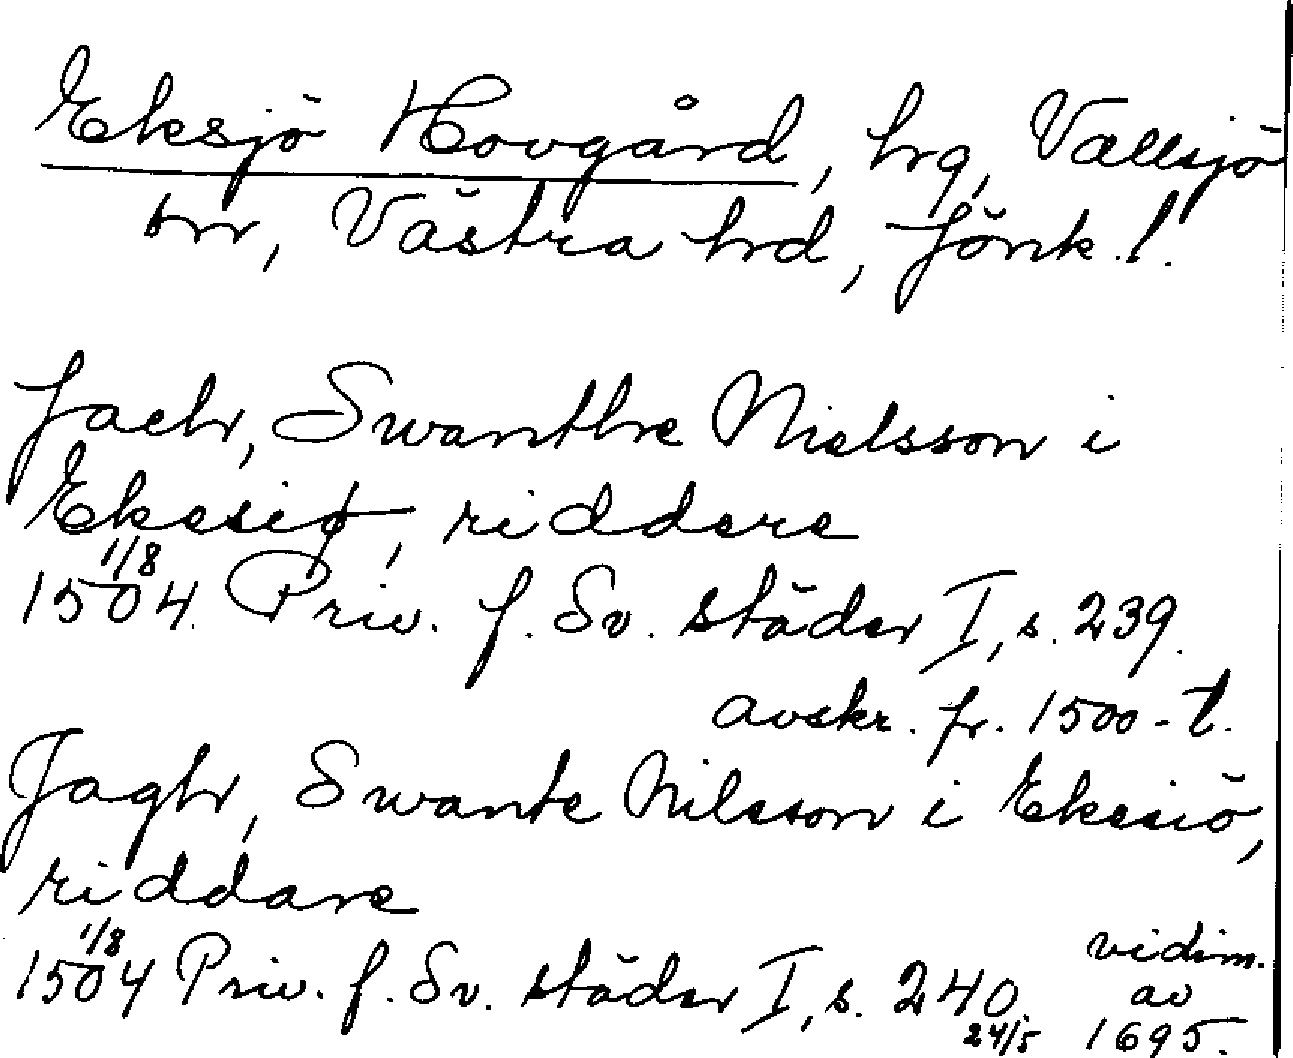 Eksjö Hovgård, hrg, Vallsjö
sn, Västra hrd, Jönk. l.
Jaeh, Swanthe Nielsson i
Ekesiø, riddere
1/8
1504. Priv. f. Sv. städer I, s. 239.
avskr. fr. 1500-t.
Jagh, Swante Nilsson i Ekesiö,
riddare
1/8 vidim.
1504 Priv. f. Sv. städer I, s. 240. av
24/5 1695.